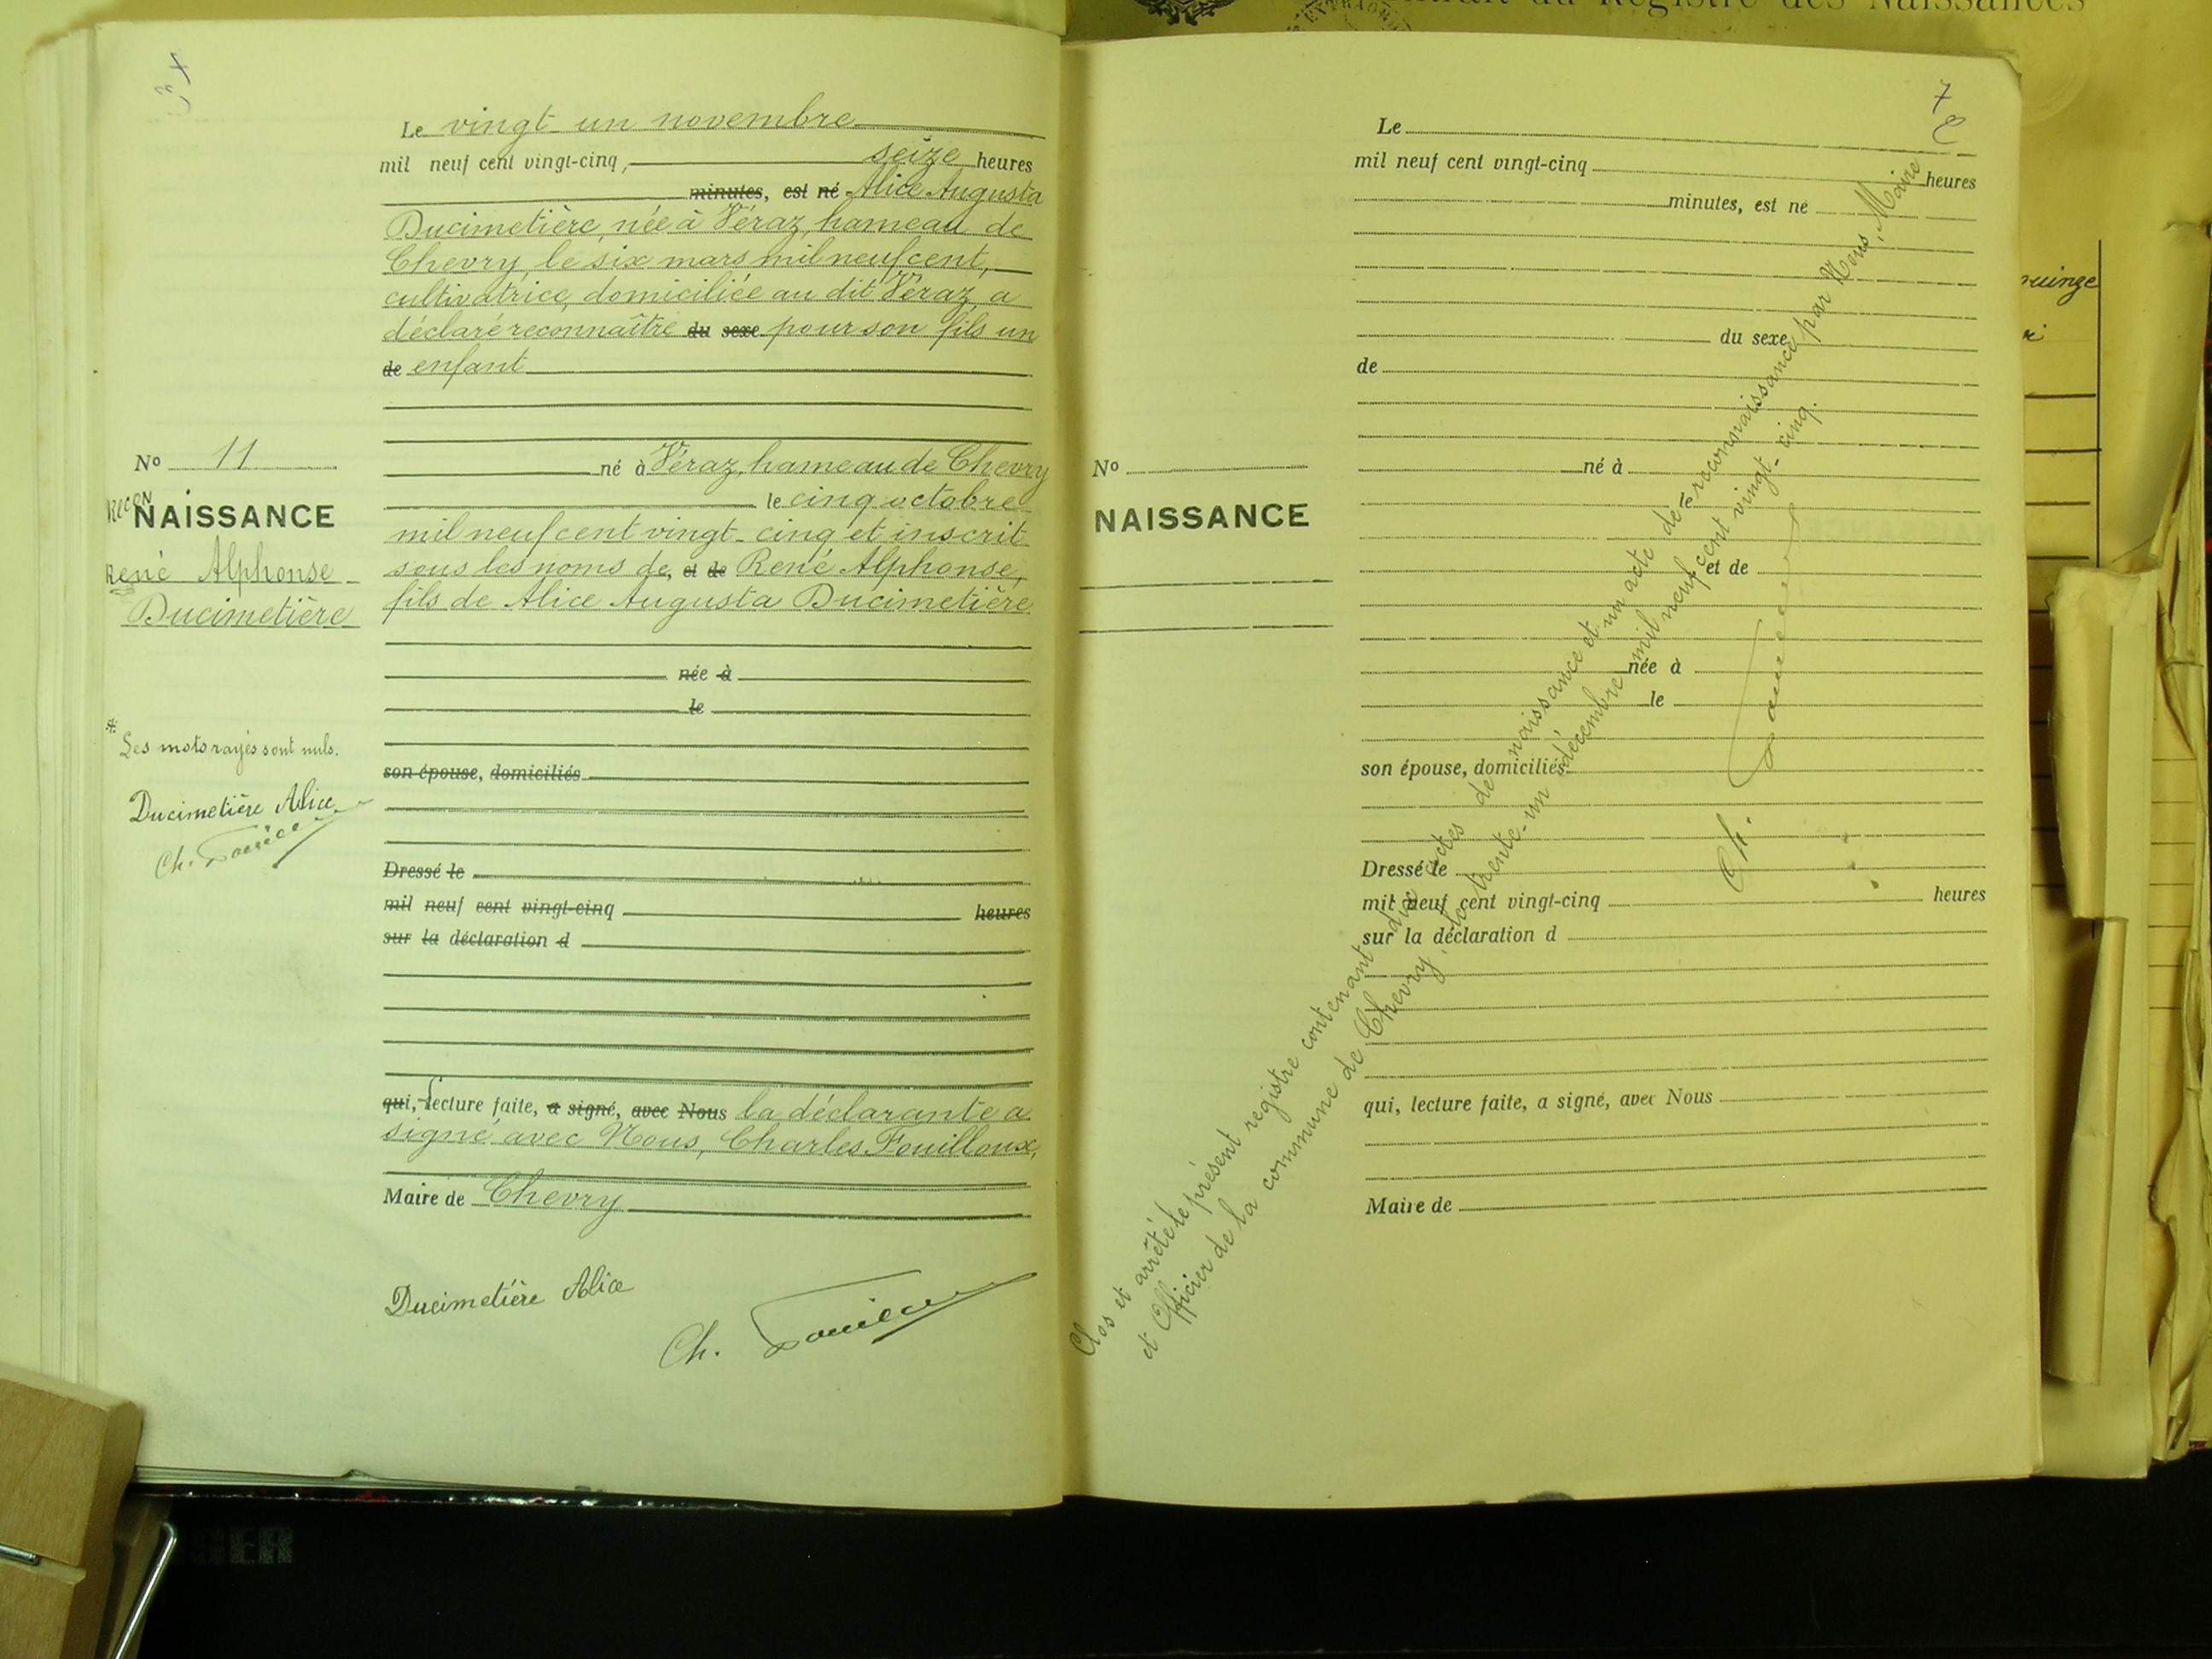 Le vingt un novembre
mil neuf cent vingt-cinq, seize heures
minutes, est né Alice Augusta
Ducimetière, née à Véraz, hameau de
Chevry, le six mars mil neuf cent,
cultivatrice, domiciliée au dit Véraz, a
déclaré reconnaître du sexe pour son fils un
de enfant
né à Véraz, hameau de Chevry
le cinq octobre
mil neuf cent vingt-cinq et inscrit
sous les noms de, et de René Alphonse,
fils de Alice Augusta Ducimetière
née à
le
son épouse, domiciliés
Dressé le
mil neuf cent vingt-cinq heures
sur la déclaration d
qui, lecture faite, a signé, avec Nous la déclarante a
signé avec Nous, Charles Fouilloux,
Maire de Chevry
Ducimetière Alice
Ch.
No 11
Recon
NAISSANCE
René Alphonse
Ducimetière
Les mots rayés sont nuls.
Ducimetière Alice
Ch.
7
Le
mil neuf cent vingt-cinq heures
minutes, est né
du sexe
de
No
NAISSANCE
né à
le
et de
née à
le
son épouse, domiciliés
Dressé le
mil neuf cent vingt-cinq heures
sur la déclaration d
qui, lecture faite, a signé, avec Nous
Maire de
Clos et arrêté le présent registre contenant dix actes de naissance et un acte de reconnaissance par Nous, Maire
et Officier de la commune de Chevry, le trente-un décembre mil neuf cent vingt-cinq.
Ch.
Registre des Naissances